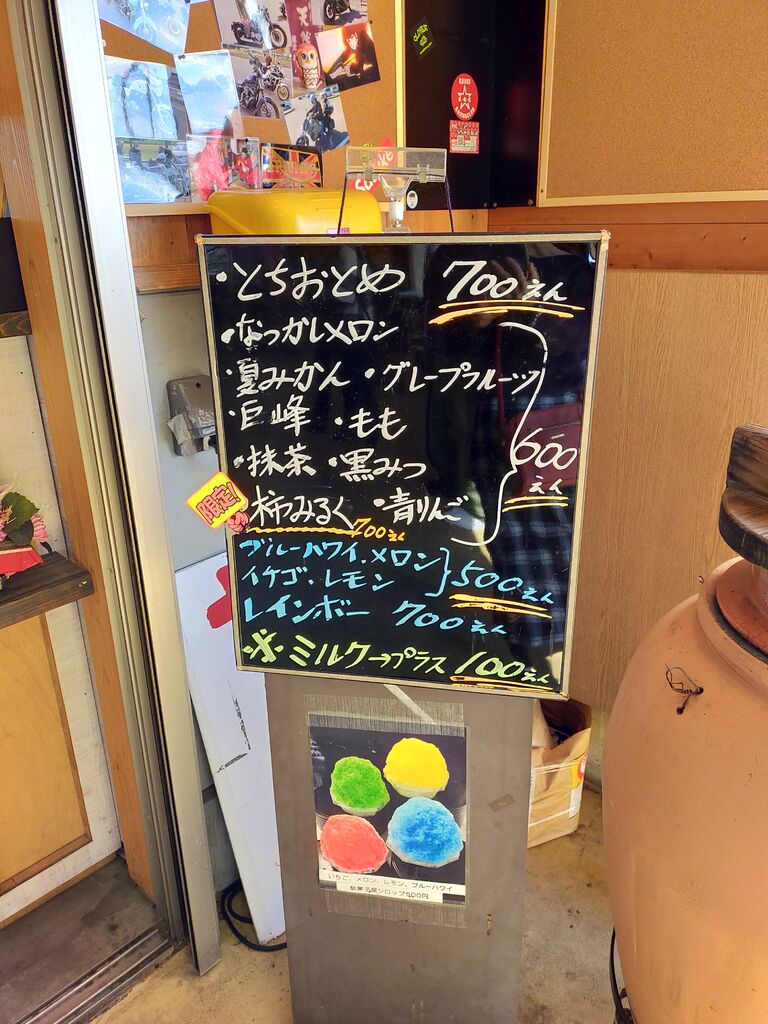 ・とちおとめ 700えん
・なつかしメロン
・夏みかん ・グレープフルーツ
・巨峰 ・もも
600えん
・抹茶 ・黒みつ
限定!
柿みるく 700えん ・青りんご
ブルーハワイ.メロン
イチゴ.レモン 500えん
レインボー 700えん
※ミルク→プラス 100えん
いちご、メロン、レモン、ブルーハワイ
駄菓子屋シロップ500円